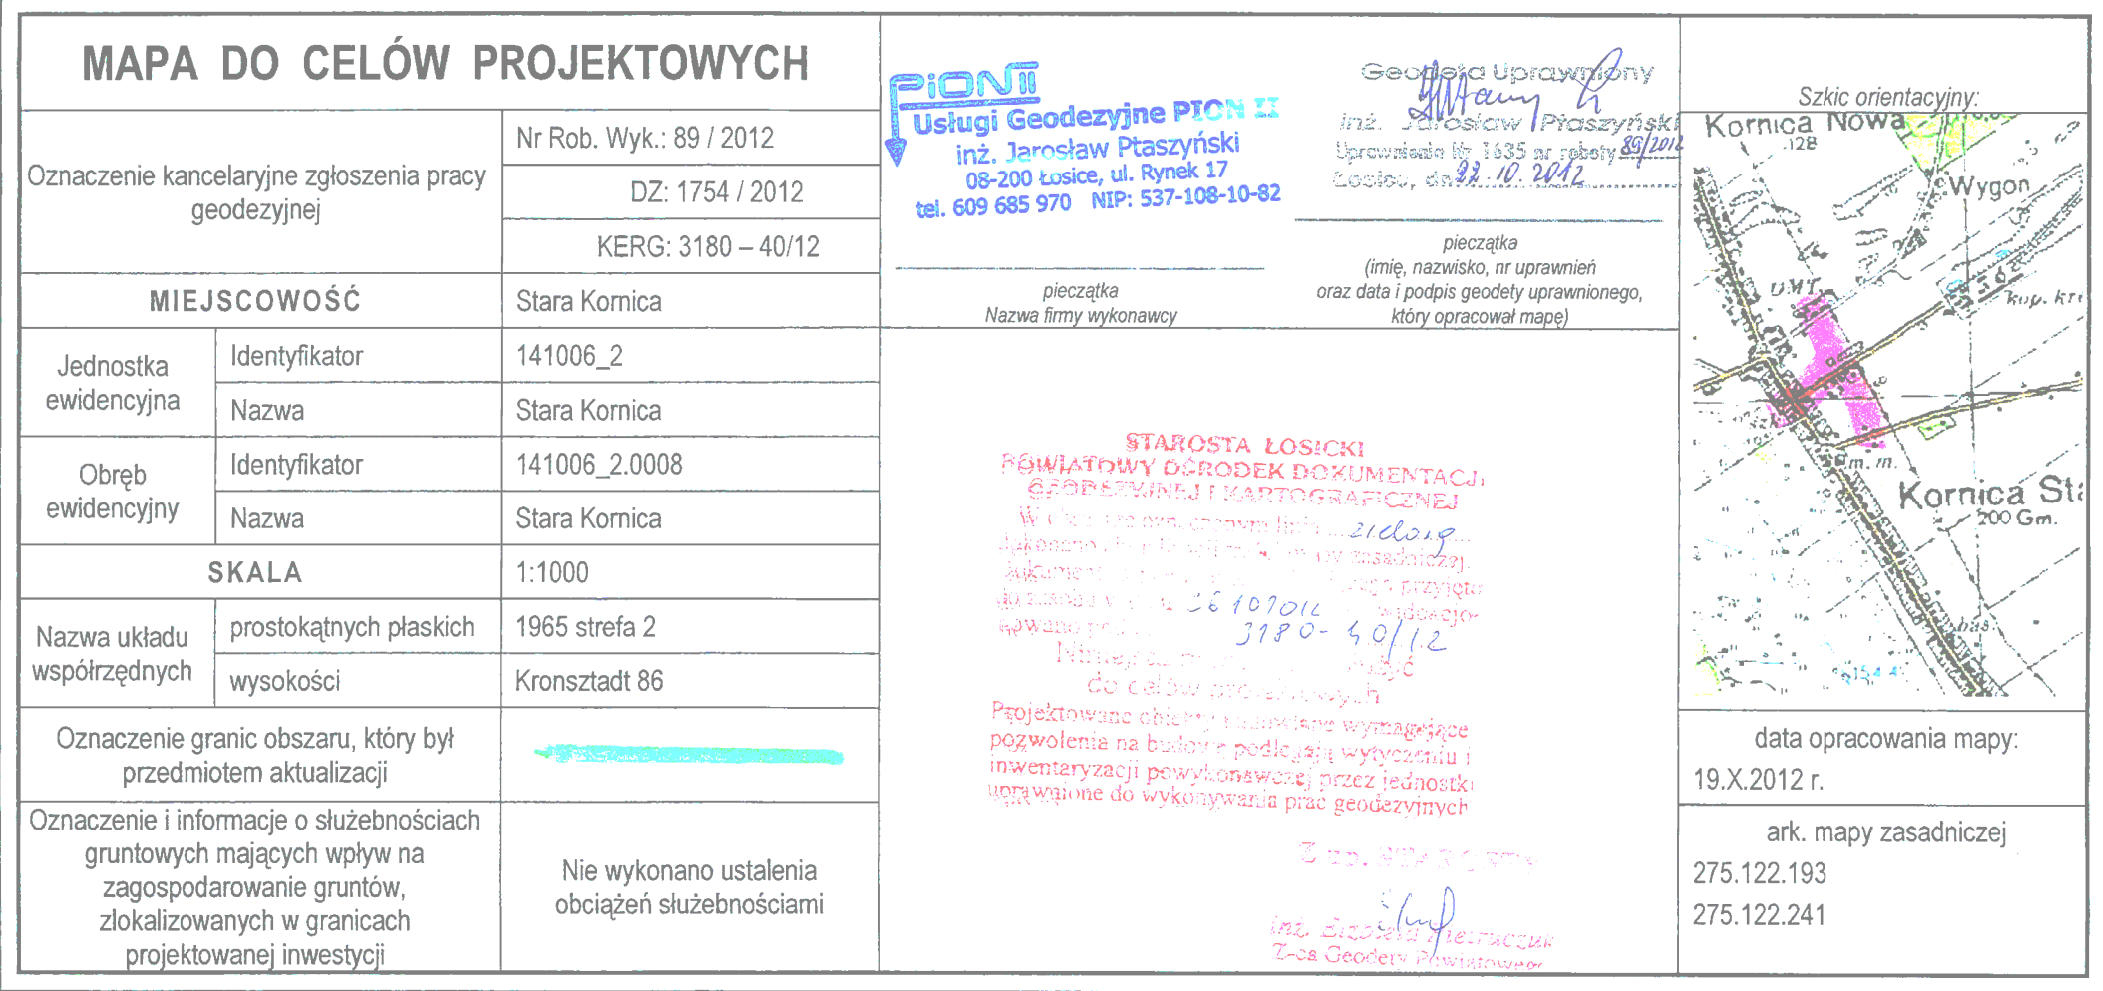 MAPA DO CELÓW PROJEKTOWYCH
Oznaczenie kancelaryjne zgłoszenia pracy
geodezyjnej
Nr Rob. Wyk.: 89 / 2012
DZ: 1754 / 2012
KERG: 3180 – 40/12
MIEJSCOWOŚĆ
Stara Kornica
Jednostka
ewidencyjna
Identyfikator
141006_2
Nazwa
Stara Kornica
Obręb
ewidencyjny
Identyfikator
141006_2.0008
Nazwa
Stara Kornica
SKALA
1:1000
Nazwa układu
współrzędnych
prostokątnych płaskich
1965 strefa 2
wysokości
Kronsztadt 86
Oznaczenie granic obszaru, który był
przedmiotem aktualizacji
Oznaczenie i informacje o służebnościach
gruntowych mających wpływ na
zagospodarowanie gruntów,
zlokalizowanych w granicach
projektowanej inwestycji
Nie wykonano ustalenia
obciążeń służebnościami
PiON II
Usługi Geodezyjne PION II
inż. Jarosław Ptaszyński
08-200 Łosice, ul. Rynek 17
tel. 609 685 970 NIP: 537-108-10-82
pieczątka
Nazwa firmy wykonawcy
Geodeta Uprawniony
inż. Jarosław Ptaszyński
Uprawnienia Nr 1635 nr roboty 89/2012
Łosice, dn. 22.10.2012
pieczątka
(imię, nazwisko, nr uprawnień
oraz data i podpis geodety uprawnionego,
który opracował mapę)
STAROSTA ŁOSICKI
POWIATOWY OŚRODEK DOKUMENTACJI
GEODEZYJNEJ I KARTOGRAFICZNEJ
zieloną
mapy zasadniczej.
przyjęto
do zasobu
3180-40/12
do celów projektowych
Projektowane obiekty budowlane wymagające
pozwolenia na budowę podlegają wytyczeniu i
inwentaryzacji powykonawczej przez jednostki
uprawnione do wykonywania prac geodezyjnych
Z up. STAROSTY
inż. Elżbieta Pietruczuk
Z-ca Geodety Powiatowego
Szkic orientacyjny:
Kornica Nowa
128
Wygon
kop. kr
m. m.
Kornica Sta
200 Gm.
154.4
data opracowania mapy:
19.X.2012 r.
ark. mapy zasadniczej
275.122.193
275.122.241